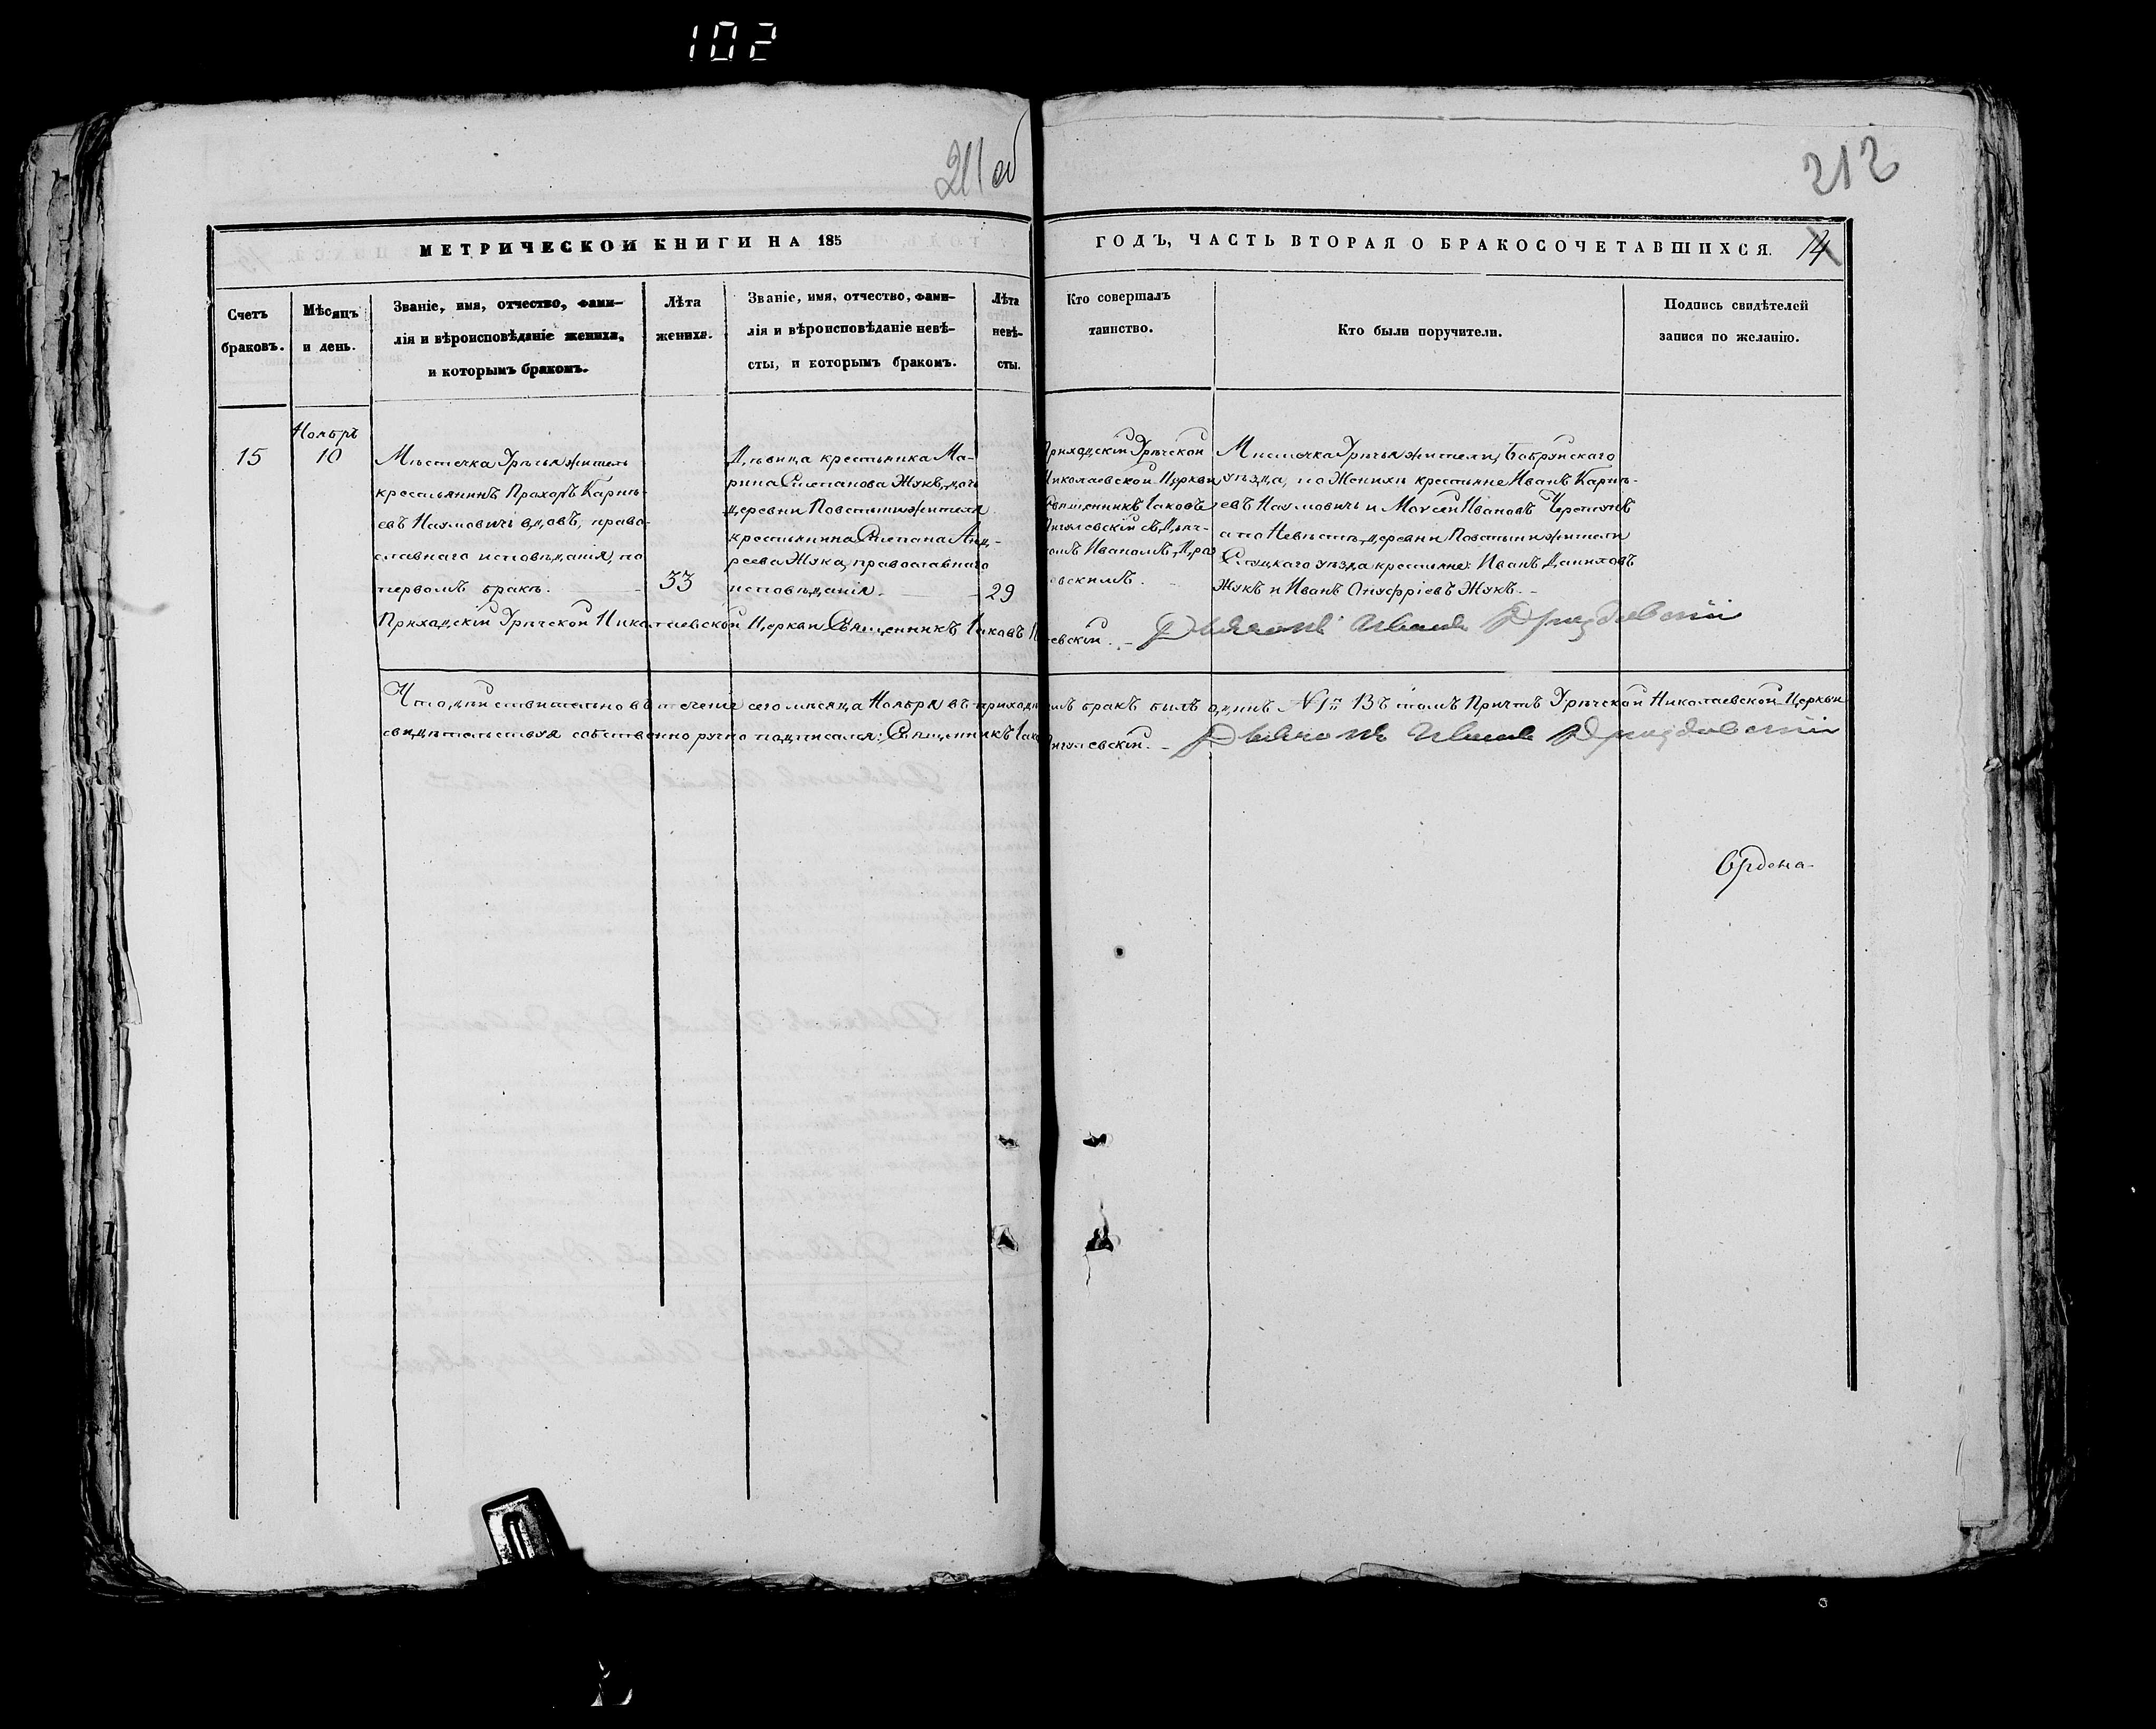 102
211 об
212
МЕТРИЧЕСКОЙ КНИГИ НА 185
ГОДЪ, ЧАСТЬ ВТОРАЯ О БРАКОСОЧЕТАВШИХСЯ.
14
Счетъ
браковъ.
Мѣсяцъ
и день.
Званіе, имя, отчество, фами-
лія и вѣроисповѣданіе жениха,
и которымъ бракомъ.
Лѣта
жениха.
Званіе, имя, отчество, фами-
лія и вѣроисповѣданіе невѣ-
сты, и которымъ бракомъ.
Лѣта
невѣ-
сты.
Кто совершалъ
таинство.
Кто были поручители.
Подпись свидѣтелей
записи по желанію.
15
Ноябрь
10
Мѣстечка Урѣчья житель
крестьянинъ Прохоръ Карпѣ-
евъ Наумовичъ вдовъ, право-
славнаго исповѣданія, по
первомъ бракѣ.
33
Дѣвица крестьянка Ма-
рина Степанова Жукъ, дочь
деревни Повстыни жителя
крестьянина Степана Анд-
реева Жука, православнаго
исповѣданія
29
Приходскій Урѣчской
Николаевской Церкви
Священникъ Іаковъ
съ Дьяч-
комъ Иваномъ
Мѣстечка Урѣчья жители, Бобруйскаго
уѣзда, по Женихѣ крестьяне Иванъ Карпѣ-
евъ Наумовичъ и Моѵсей Ивановъ
а по Невѣстѣ, деревни Повстыни жители
Слуцкаго уѣзда крестьяне: Иванъ Даниловъ
Жукъ и Иванъ Онуфріевъ Жукъ.
Приходскій Урѣчской Николаевской Церкви Священникъ Іаковъ
Дьячокъ Иванъ
Что дѣйствительно въ теченіе сего мѣсяца Ноября въ приходѣ семъ бракъ былъ одинъ №1й Въ томъ Причтъ Урѣчской Николаевской Церкви
свидѣтельствуя собственноручно подписался: Священникъ Іаковъ
Дьячокъ Иванъ
Ордена